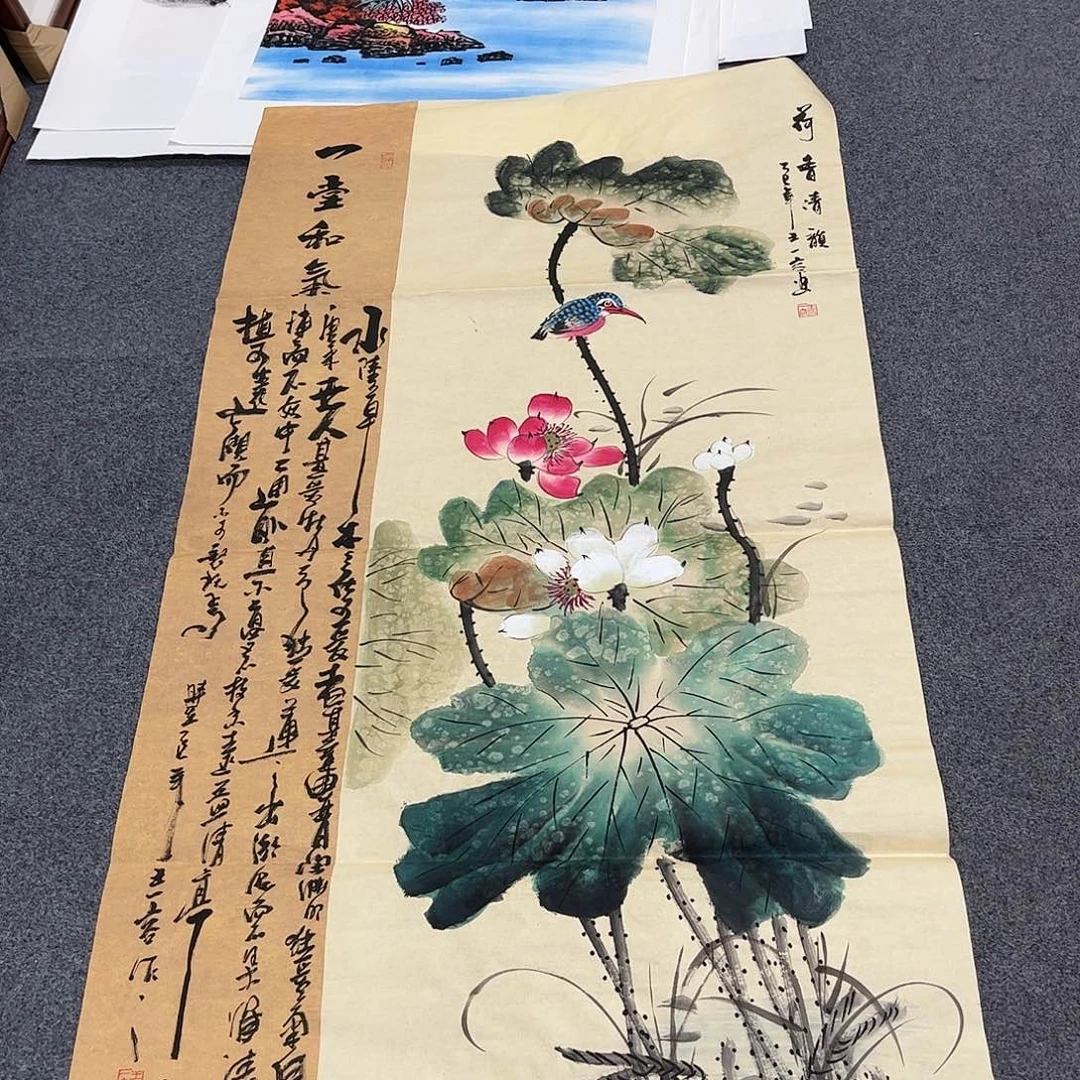 荷香清韻
乙巳年
一堂和氣
水陸草木之花可愛者甚蕃晋陶淵明獨愛菊自
唐來世人甚愛牡丹予獨愛蓮之出淤泥而不染濯清
而不妖中通外直不蔓不枝香遠益清亭
植可遠觀而不可褻玩焉
時乙巳年